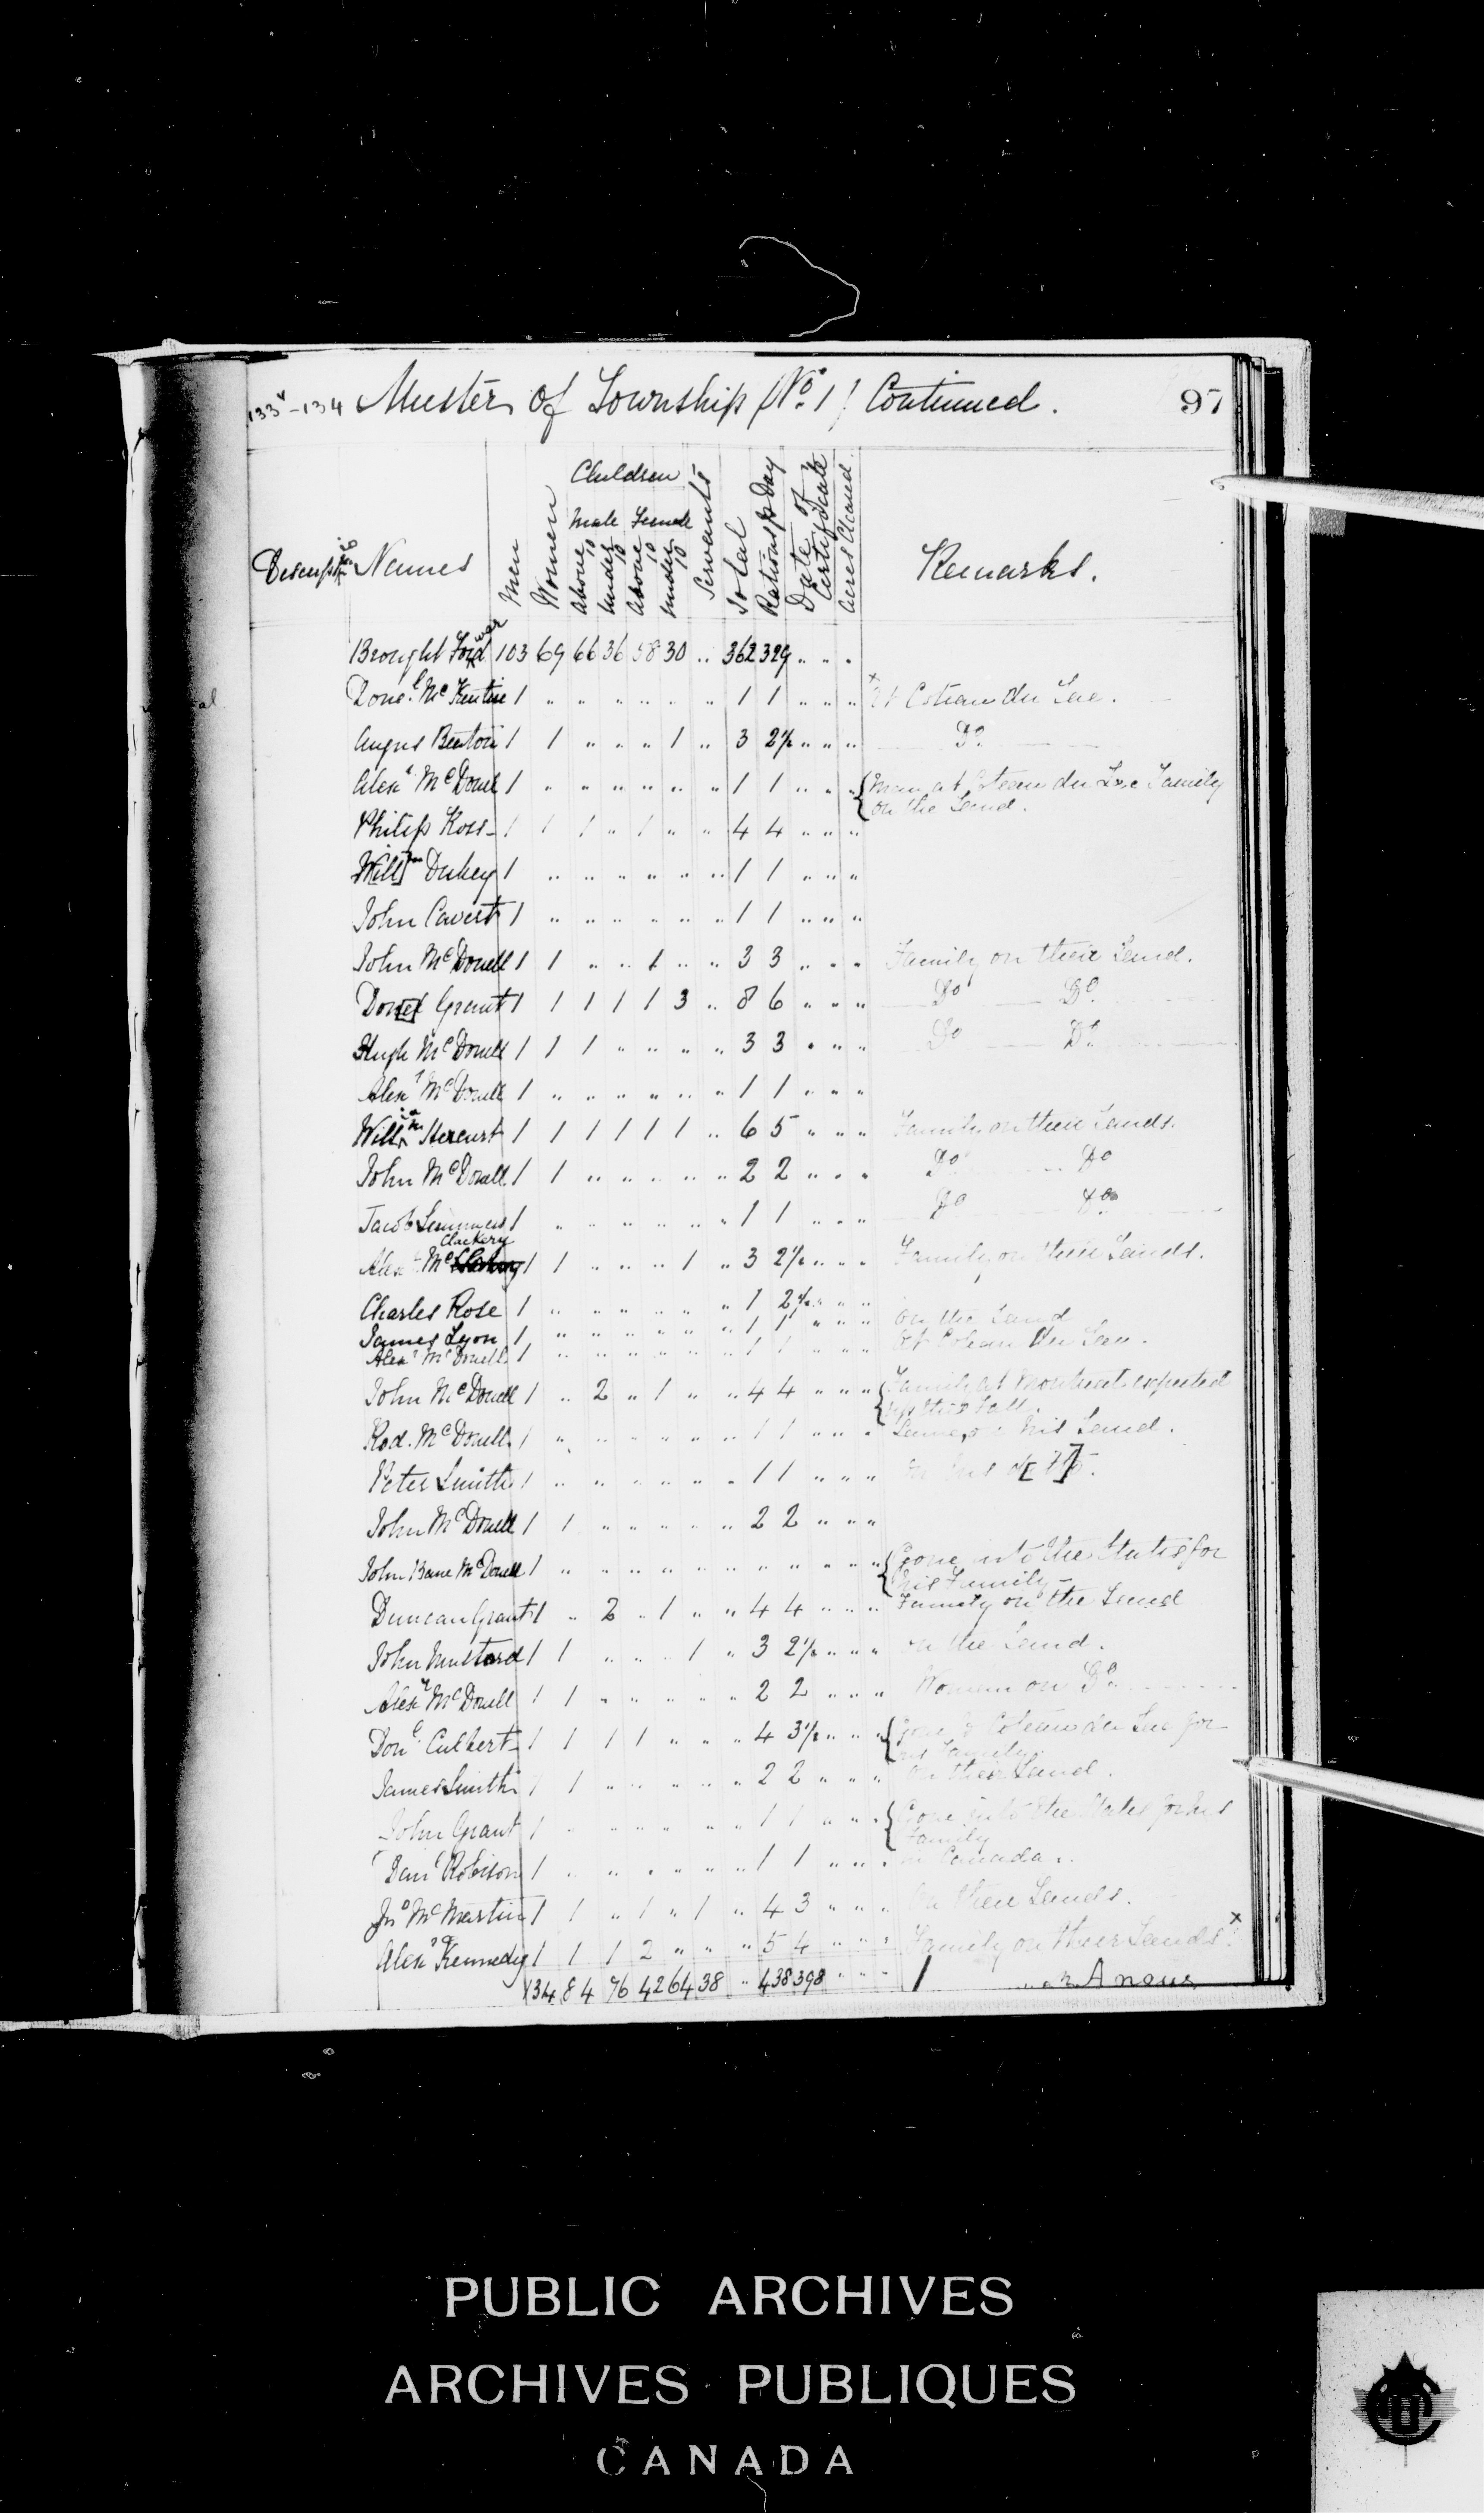 133v-134 Muster of Township (No 1) Continued. 97
Children
Male Female
Descript Names Men Women Above 10 Under 10 Above 10 Under 10 Servants Total Rations p Day Date of Certificate Acres Cleared Remarks.
Brought Forward 103 69 66 36 58 30 .. 362 329 .. .. ..
Donel McKentire 1 .. .. .. .. .. .. 1 1 .. .. .. At Coteau du Lac.
Angus Beeton 1 1 .. .. .. 1 .. 3 2½ .. .. .. Do
Alexr McDonell 1 .. .. .. .. .. .. 1 1 .. .. .. { Man at Coteau du Lac Family
on the Land.
Philip Ross 1 1 1 .. 1 .. .. 4 4 .. .. ..
Will[ ]m Duhey 1 .. .. .. .. .. .. 1 1 .. .. ..
John Cavert 1 .. .. .. .. .. .. 1 1 .. .. ..
John McDonell 1 1 .. .. 1 .. .. 3 3 .. .. .. Family on their Land.
Don[el] Grant 1 1 1 1 1 3 .. 8 6 .. .. .. Do Do
Hugh McDonell 1 1 1 .. .. .. .. 3 3 .. .. .. Do Do
Alexr McDonell 1 .. .. .. .. .. .. 1 1 .. .. ..
William 1 1 1 1 1 1 .. 6 5 .. .. .. Family on their Lands.
John McDonell 1 1 .. .. .. .. .. 2 2 .. .. .. Do Do
Jacob Summers 1 .. .. .. .. .. .. 1 1 .. .. .. Do Do
Clackery
Alexr Mc 1 1 .. .. .. 1 .. 3 2½ .. .. .. Family on their Lands.
Charles Rose 1 .. .. .. .. .. .. 1 2½ .. .. ..
James Lyon 1 .. .. .. .. .. .. 1 1 .. .. .. on the Land
Alexr McDonell 1 .. .. .. .. .. .. 1 1 .. .. .. At Coteau du Lac.
John McDonell 1 .. 2 .. 1 .. .. 4 4 .. .. .. { Family at Montreal expected
up this Fall.
Rod. McDonell 1 .. .. .. .. .. .. 1 1 .. .. .. his Land.
Peter Smith 1 .. .. .. .. .. .. 1 1 .. .. .. on his
John McDonell 1 1 .. .. .. .. .. 2 2 .. .. ..
John Bane McDonell 1 .. .. .. .. .. .. .. .. .. .. .. { Gone into the States for
his Family
Duncan Grant 1 .. 2 .. 1 .. .. 4 4 .. .. .. Family on the Land
John Mustard 1 1 .. .. .. 1 .. 3 2½ .. .. .. on the Land.
Alexr McDonell 1 1 .. .. .. .. .. 2 2 .. .. .. Women on Do
Donl Culbert 1 1 1 1 .. .. .. 4 3½ .. .. .. { Gone to Coteau du Lac for
his Family
James Smith 1 1 .. .. .. .. .. 2 2 .. .. .. on their Land.
John Grant 1 .. .. .. .. .. .. 1 1 .. .. .. { Gone into the States for his
Family
Danl Robison 1 .. .. .. .. .. .. 1 1 .. .. .. in Canada.
Jno McMartin 1 1 .. 1 .. 1 .. 4 3 .. .. .. On their Lands.
Alexr Kennedy 1 1 1 2 .. .. .. 5 4 .. .. .. Family on their Lands. x
134 84 76 42 64 38 .. 438 398 .. .. .. Angus
PUBLIC ARCHIVES
ARCHIVES PUBLIQUES
CANADA